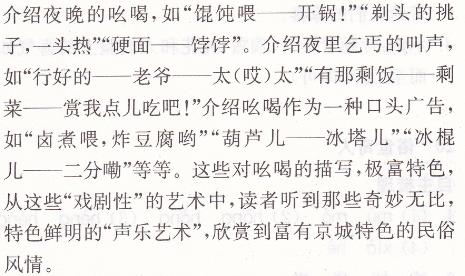 介绍夜晚的吆喝，如“馄饨喂——开锅！”“剃头的挑
子，一头热”“硬面——饽饽”。介绍夜里乞丐的叫声，
如“行好的——老爷——太（哎）太”“有那剩饭——剩
菜——赏我点儿吃吧！”介绍吆喝作为一种口头广告，
如“卤煮喂，炸豆腐哟”“葫芦儿——冰塔儿”“冰棍
儿——二分嘞”等等。这些对吆喝的描写，极富特色，
从这些“戏剧性”的艺术中，读者听到那些奇妙无比，
特色鲜明的“声乐艺术”，欣赏到富有京城特色的民俗
风情。